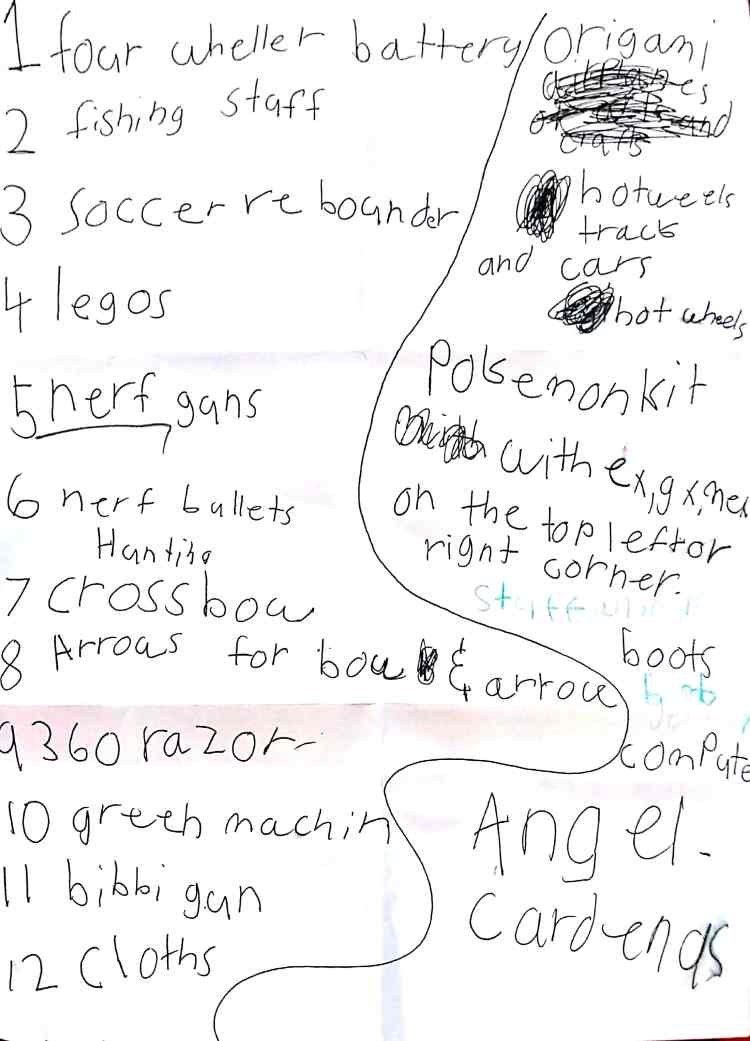 1 four wheller battery
2 fishing staff
3 soccer rebounder
4 legos
5 nerf guns
6 nerf bullets
Hunting
7 crossbow
8 Arrows for bow & arrow
9 360 razor
10 green machin
11 bibbi gun
12 cloths
origami
hotweels
track
and cars
hot wheels
Pokemon kit
with ex, gx,
on the top left or
right corner.
staff
boots
compute
Angel
Cardenas